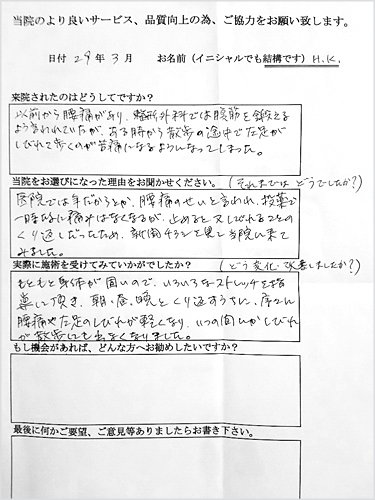 当院のより良いサービス、品質向上の為、ご協力をお願い致します。
日付 29年3月 お名前(イニシャルでも結構です) H.K.
来院されたのはどうしてですか?
以前から腰痛があり、整形外科では腹筋を鍛える
よう言われていたが、ある時から散歩の途中で左足が
しびれて歩くのが苦痛になるようになってしまった。
当院をお選びになった理由をお聞かせください。(それまではどうでしたか?)
医院では年だからとか、腰痛のせいと言われ、投薬で
一時的に痛みはなくなるが、止めると又しびれることの
くり返しだったため、新聞チラシを見て当院に来て
みました。
実際に施術を受けてみていかがでしたか?(どう変化・改善しましたか?)
もともと身体が固いので、いろいろなストレッチを指
導して頂き、朝・昼・晩とくり返すうちに、序々に
腰痛や左足のしびれが軽くなり、いつの間にかしびれ
が散歩にも出なくなりました。
もし機会があれば、どんな方へお勧めしたいですか?
最後に何かご要望、ご意見等ありましたらお書き下さい。